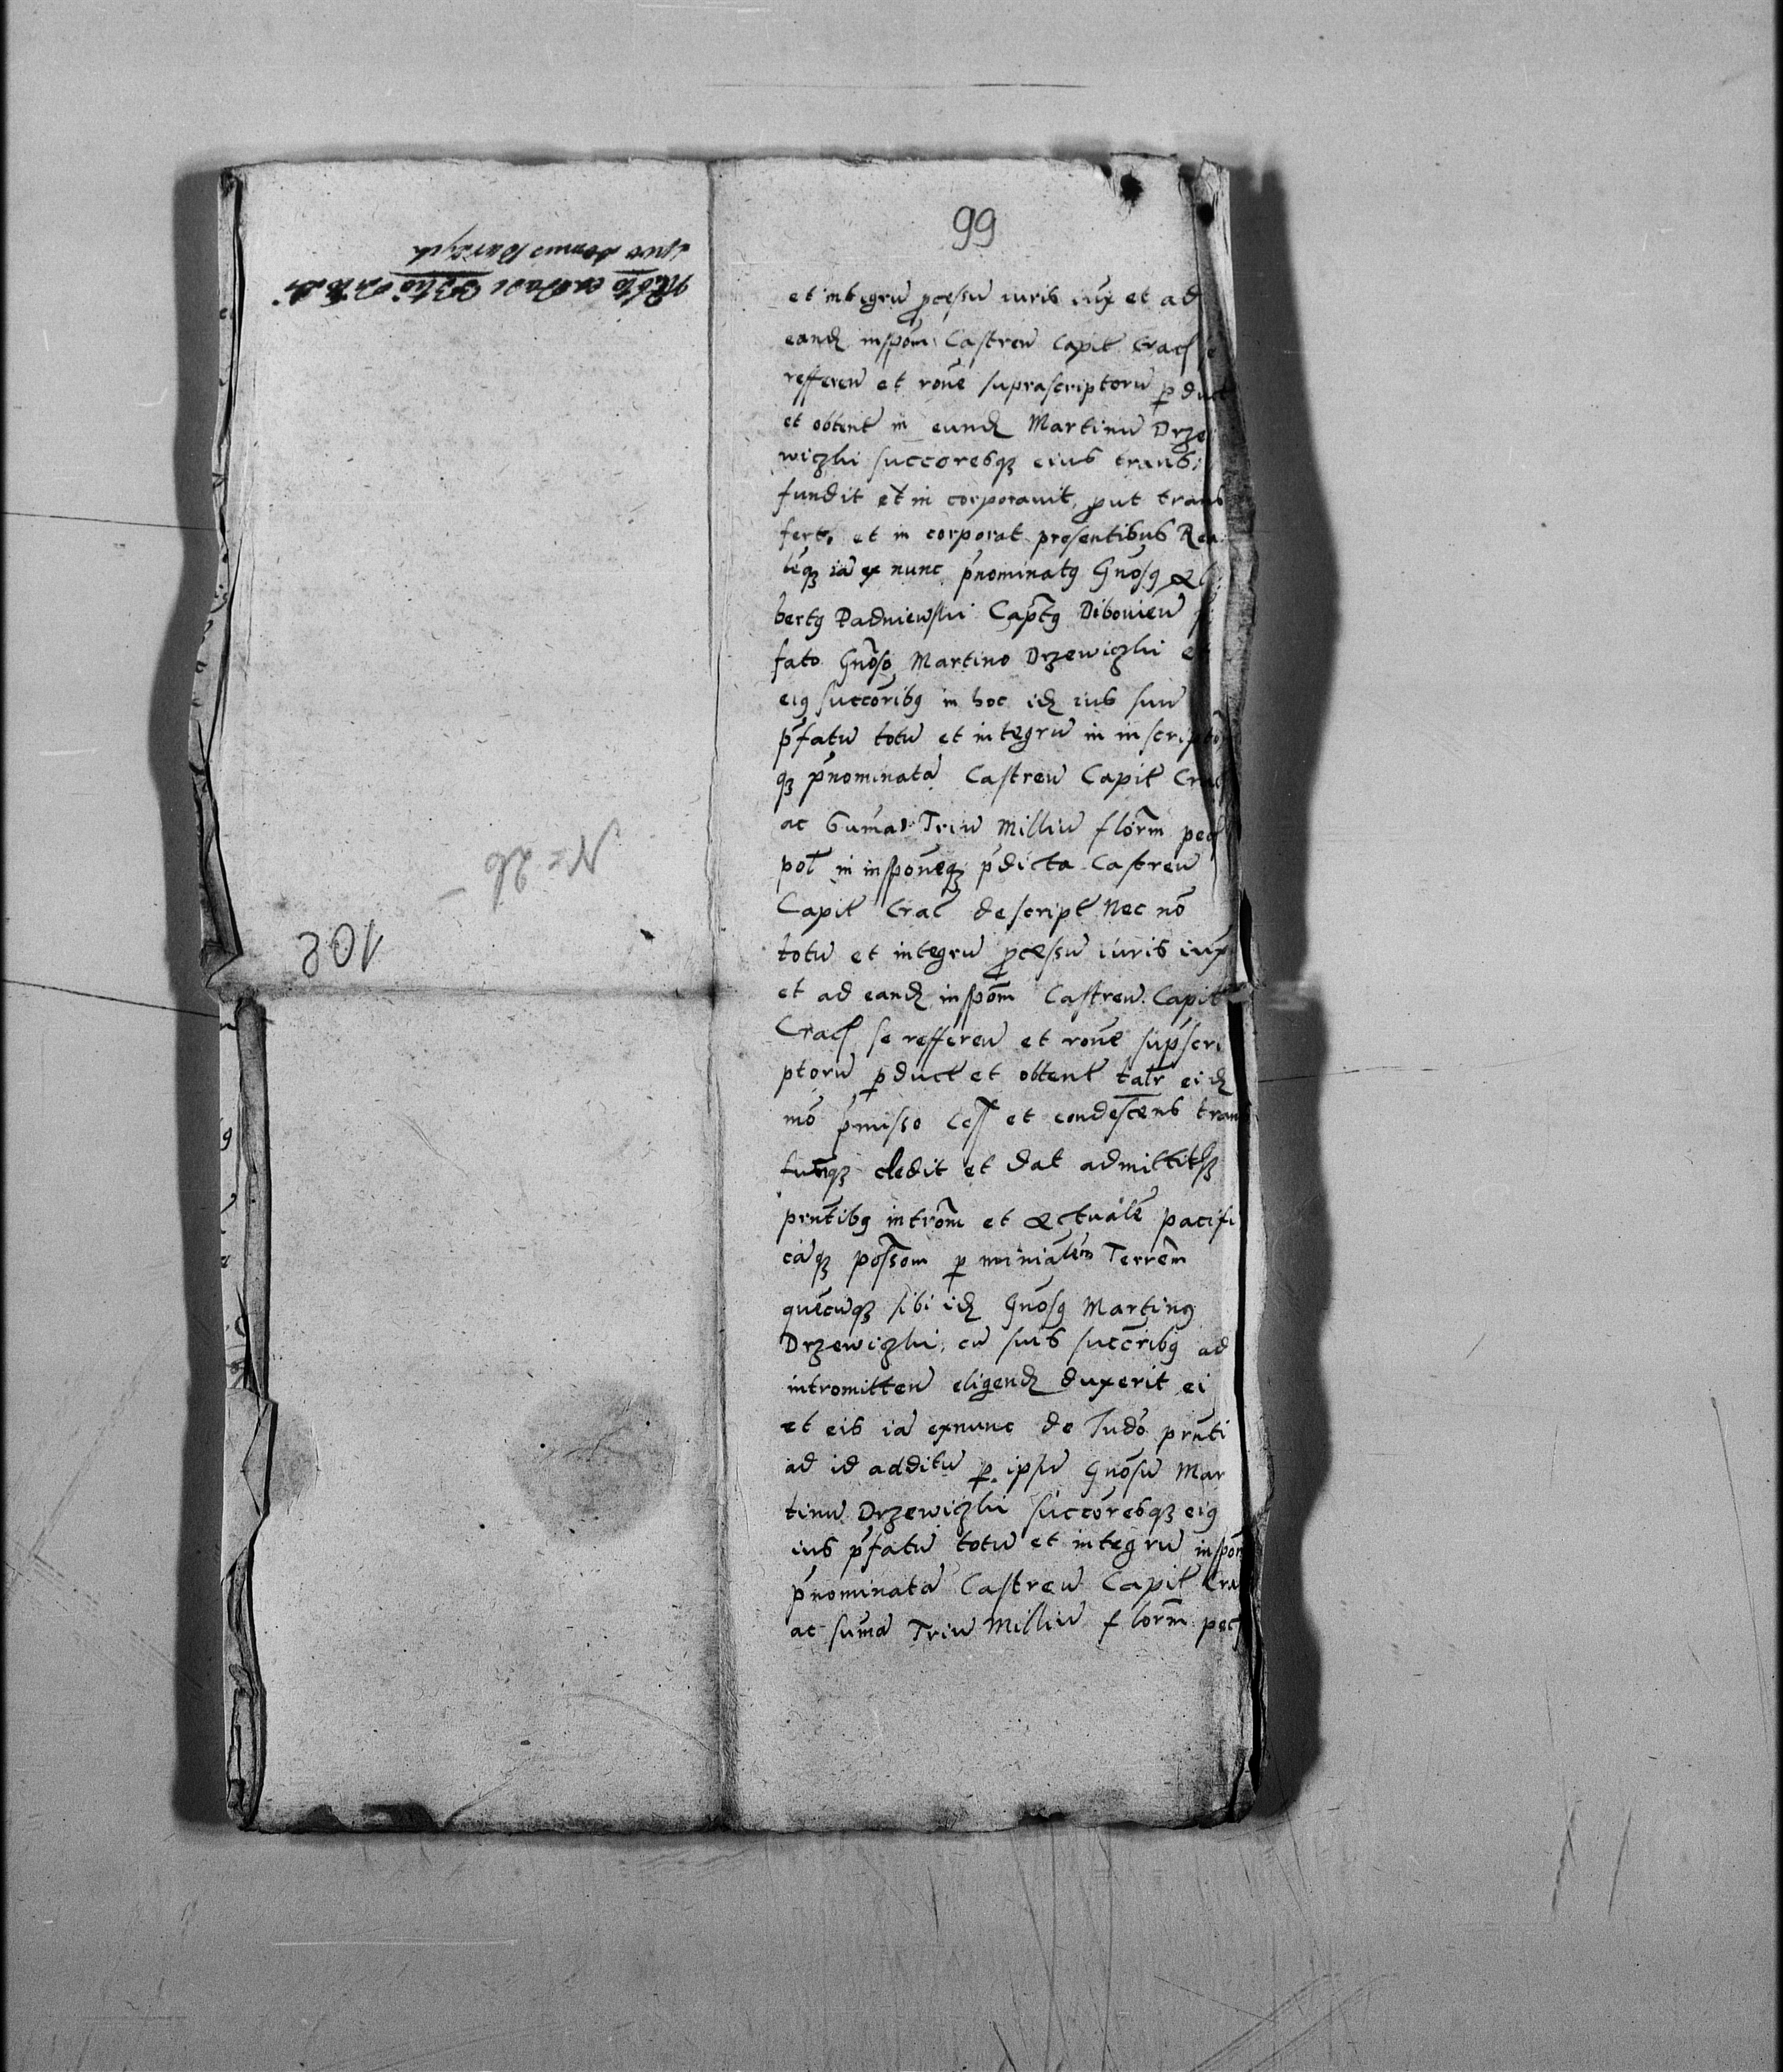 99
et integrū ꝓcessū iuris iux et ad
eandē inspōm Castreñ Capit Crac se
refferen et rōne suprascriptorū ꝓduct
et obtent in eundē Martinū Drze
wiczki succoresq; eius trans
fundit et in corporavit, ꝓut trans
fert, et in corporat presentibus Rea
liq; iā ex nunc p̄nominatꝯ Gnōsꝯ Al
bertꝯ Padniewski Captꝯ Dibovien p̄
fato Gnōso Martino Drzewiczki et
eiꝯ succōribꝯ in hoc idē ius suū
p̄fatū totū et integrū in inscriptō
q; p̄nominatā Castreñ Capit Crac
ac Sumā Triū Milliū flōrm pec
pol in inspōneq; p̄dicta Castreñ
Capit Crac descript Nec nō
totū et integrū ꝓcessū iuris iux
et ad eandē inspōm Castreñ Capit
Crac se refferen et rōne sup̄scri
ptorū ꝓduct et obtent talr eidē
mō p̄misso Cess et condescens tran
dedit et dat admittitq;
pr̄ntibꝯ intrōm et Actualē pacifi
cāq; possōm ꝑ miniālem Terrēm
quēcūq; sibi idē Gnōsꝯ Martinꝯ
Drzewiczki cū suis succribꝯ ad
intromitten eligendē duxerit ei
et eis iā exnunc de Iudō pr̄nti
ad id additū ꝑ ipsū Gnōsū Mar
tinū Drzewiczki succōresq; eiꝯ
ius p̄fatū totū et integrū inspōn
p̄nominatā Castreñ Capit Cra
ac sumā Triū Milliū flōrm pec
N= 26 -
108